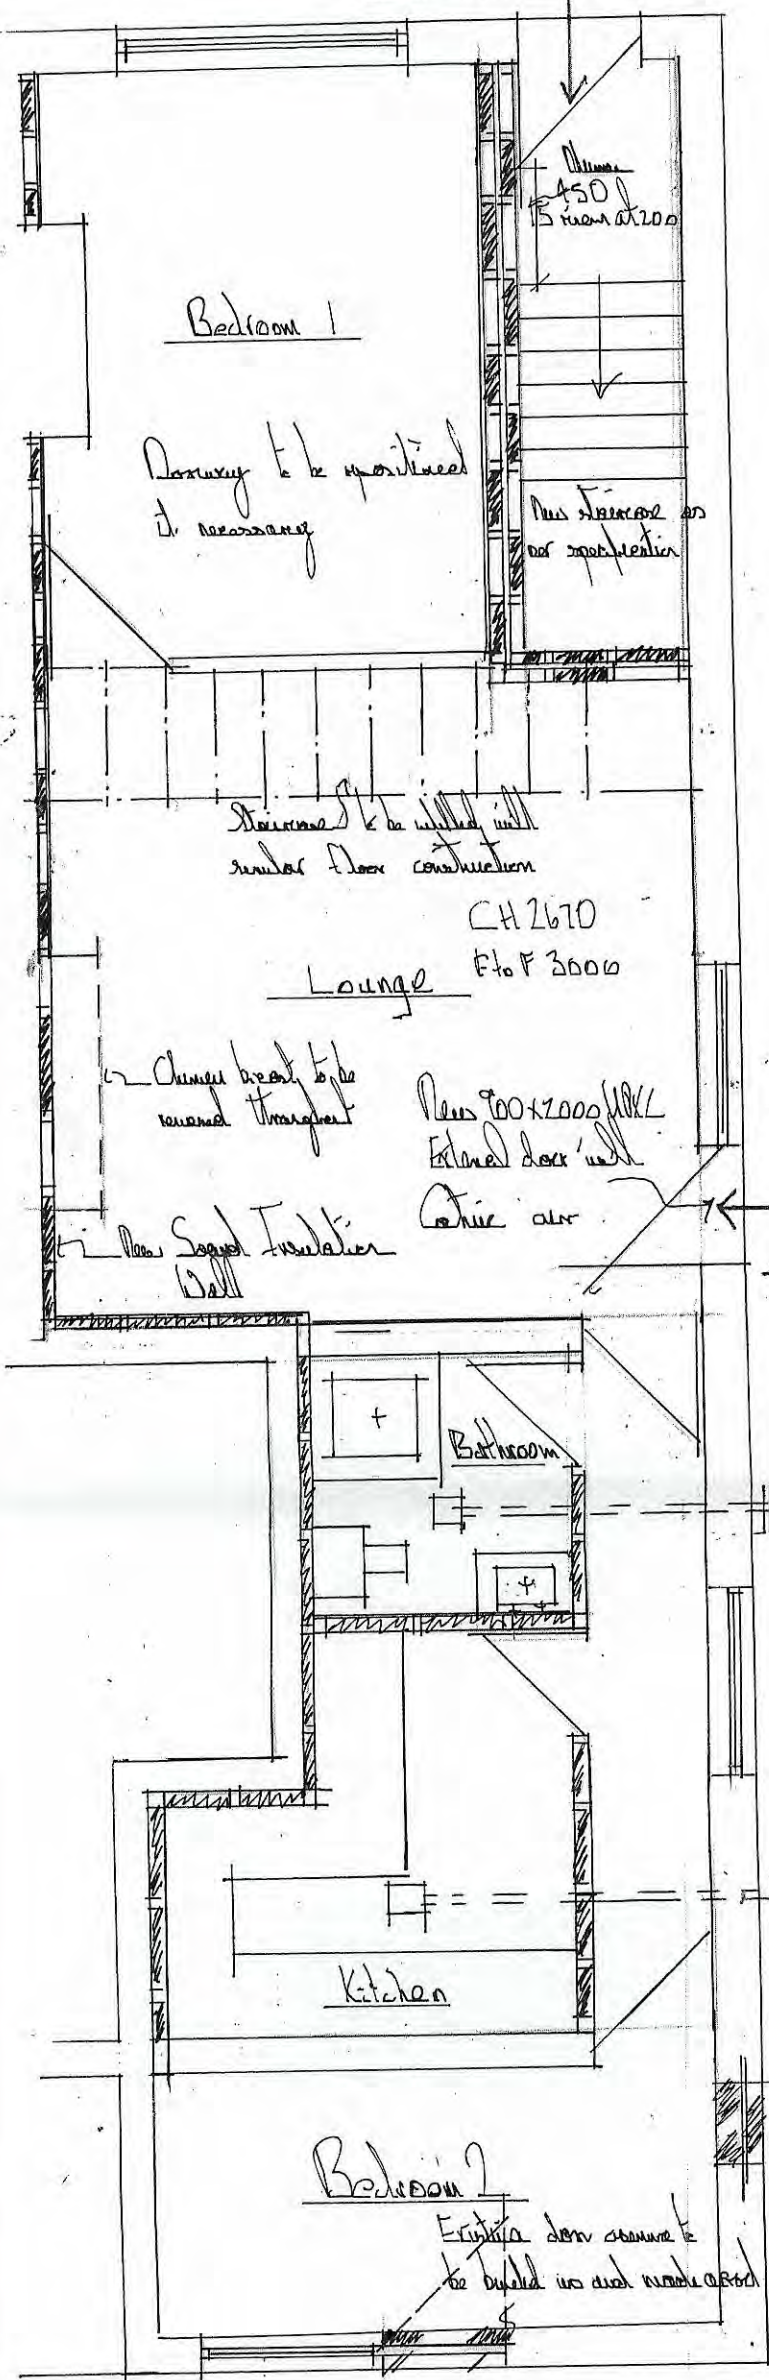 450
15 risers at 200
Bedroom 1
Doorway to be repositioned
if necessary
New staircase as
per specification
Staircase to be infilled with
similar floor construction
CH 2670
F to F 3000
Lounge
Chimney breast to be
removed throughout
New 900x2000
External door with
New Sound Insulation
Wall
Bathroom
Kitchen
Bedroom 2
Existing door to
be in and made good